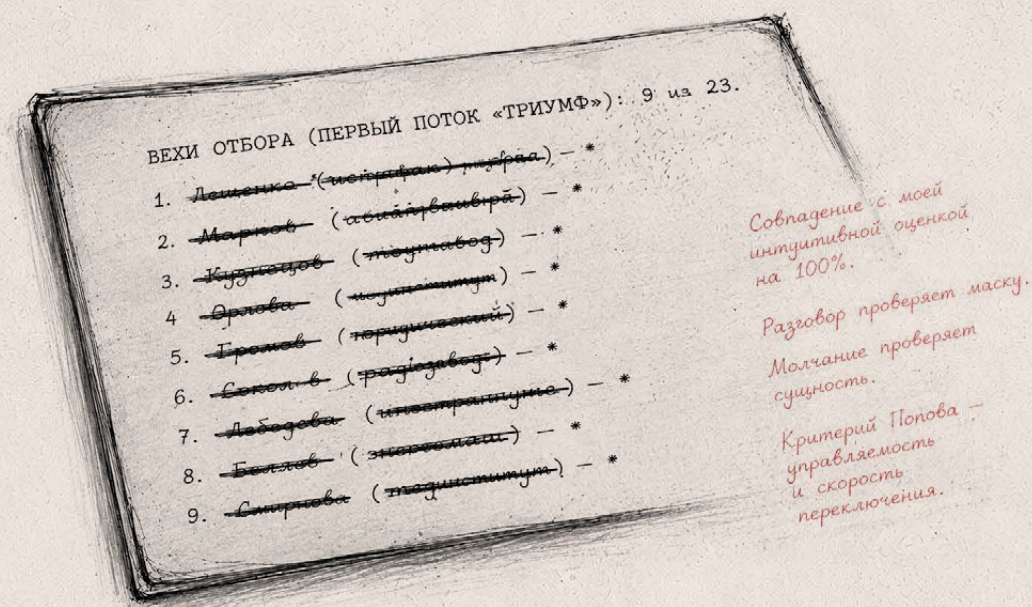 ВЕХИ ОТБОРА (ПЕРВЫЙ ПОТОК «ТРИУМФ»): 9 из 23.
1. Лещенко — *
2. Марков — *
3. Кузнецов — *
4 Орлова — *
5. Громов (юридический) — *
6. — *
7. Лебедева — *
8. Беляев (энергомаш) — *
9. Смирнова — *
Совпадение с моей
интуитивной оценкой
на 100%.
Разговор проверяет маску.
Молчание проверяет
сущность.
Критерий Попова —
управляемость
и скорость
переключения.